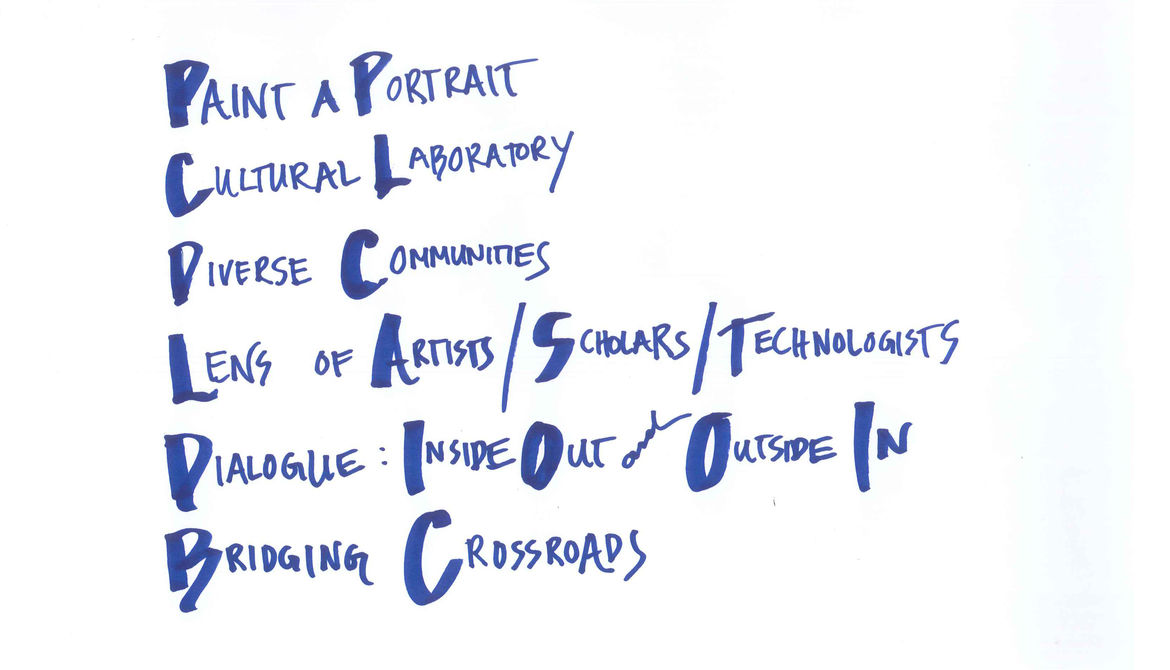 PAINT A PORTRAIT
CULTURAL LABORATORY
DIVERSE COMMUNITIES
LENS OF ARTISTS/SCHOLARS/TECHNOLOGISTS
DIALOGUE: INSIDE OUT and OUTSIDE IN
BRIDGING CROSSROADS